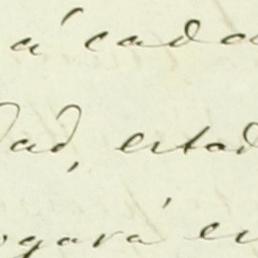 á cada
dad, estad
ogará en